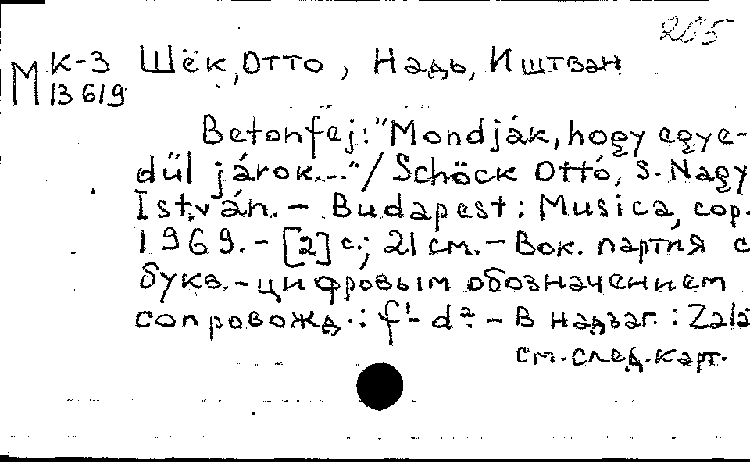 205
М К-3 Шёк, Отто, Надь, Иштван
13619
Betonfej: "Mondják, hogy egye-
dül járok..." / Schöck Ottó, S. Nagy
István. - Budapest: Musica, cop.
1969. - [2] с.; 21 см. - Вок. партия с
букв.-цифровым обозначением
сопровожд.: f¹-d². - В надзаг.: Zala
см. след. карт.